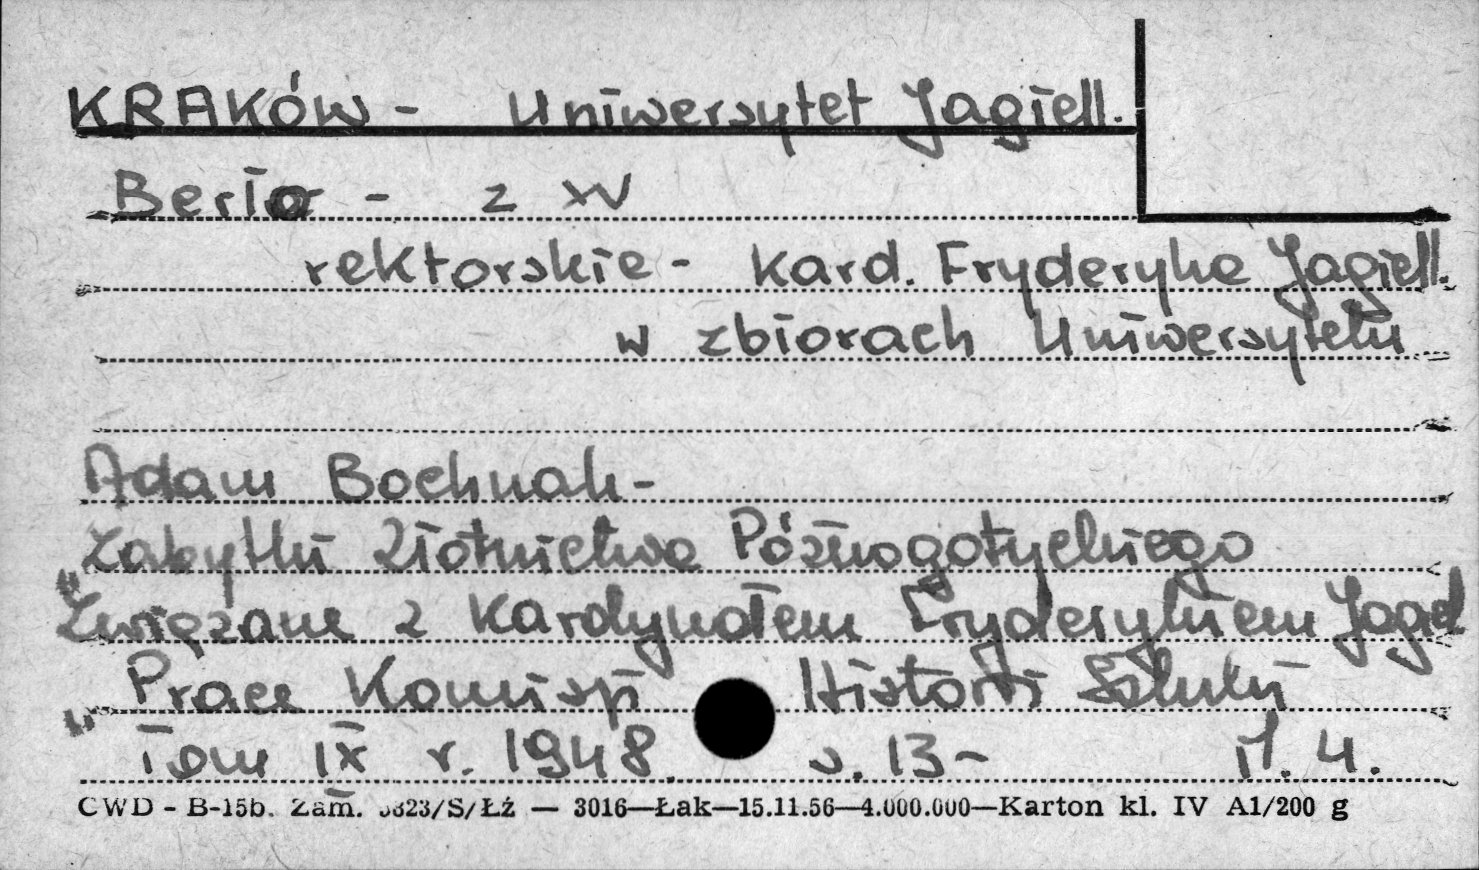 KRAKÓW - Uniwersytet Jagiell.
Berło - z XV
rektorskie - Kard. Fryderyka Jagiell.
w zbiorach Uniwersytetu
Adam Bochnak -
Zabytki Złotnictwa Późnogotyckiego
Związane z Kardynałem Fryderykiem Jagiel
"Prace Komisji Historii Sztuki"
Tom IX r. 1948. s. 13 - il. 4.
CWD - B-15b. Zam. 5823/S/ŁŹ — 3016—Łak—15.11.56—4.000.000—Karton kl. IV A1/200 g